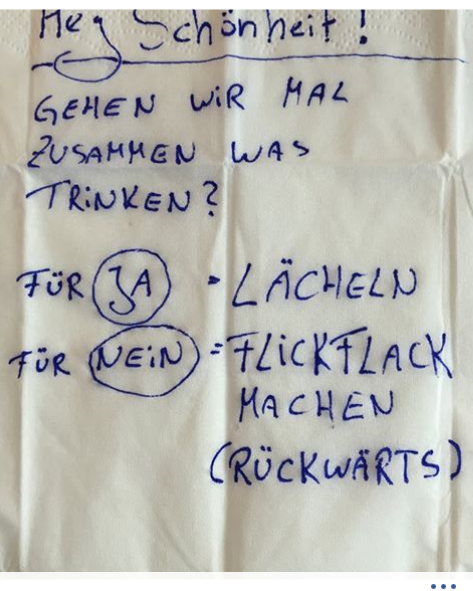 Hey Schönheit!
GEHEN WiR MAL
ZUSAMMEN WAS
TRiNKEN?
FÜR JA = LÄCHELN
FÜR NEiN = FLiCKFLACK
MACHEN
(RÜCKWÄRTS)